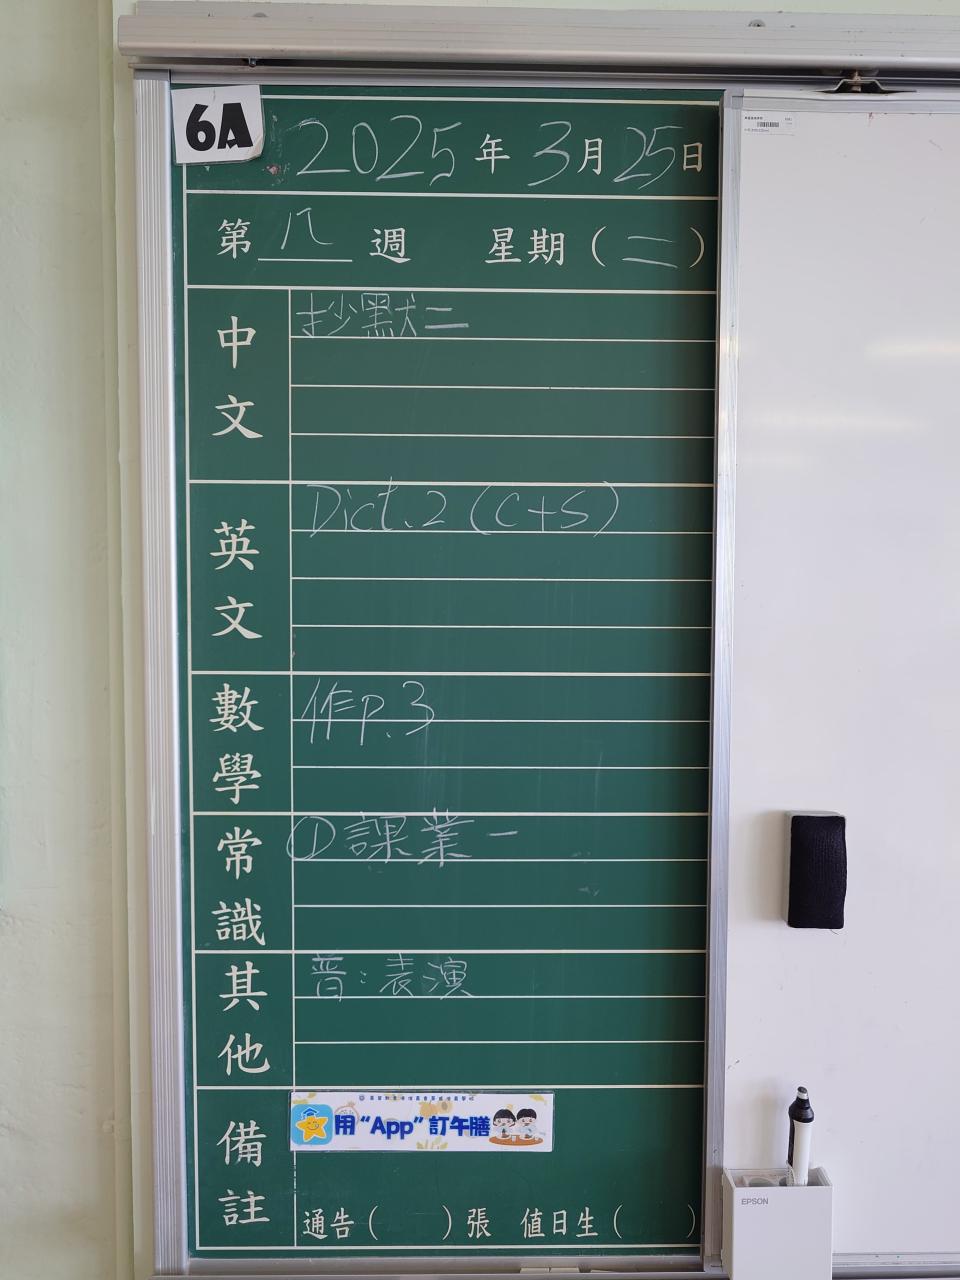 6A
2025年3月25日
第八週 星期(二)
中文
抄默二
英文
Dict.2 (C+S)
數學
作P.3
常識
①課業一
其他
普:表演
備註
用“App”訂午膳
通告( )張 值日生( )
EPSON